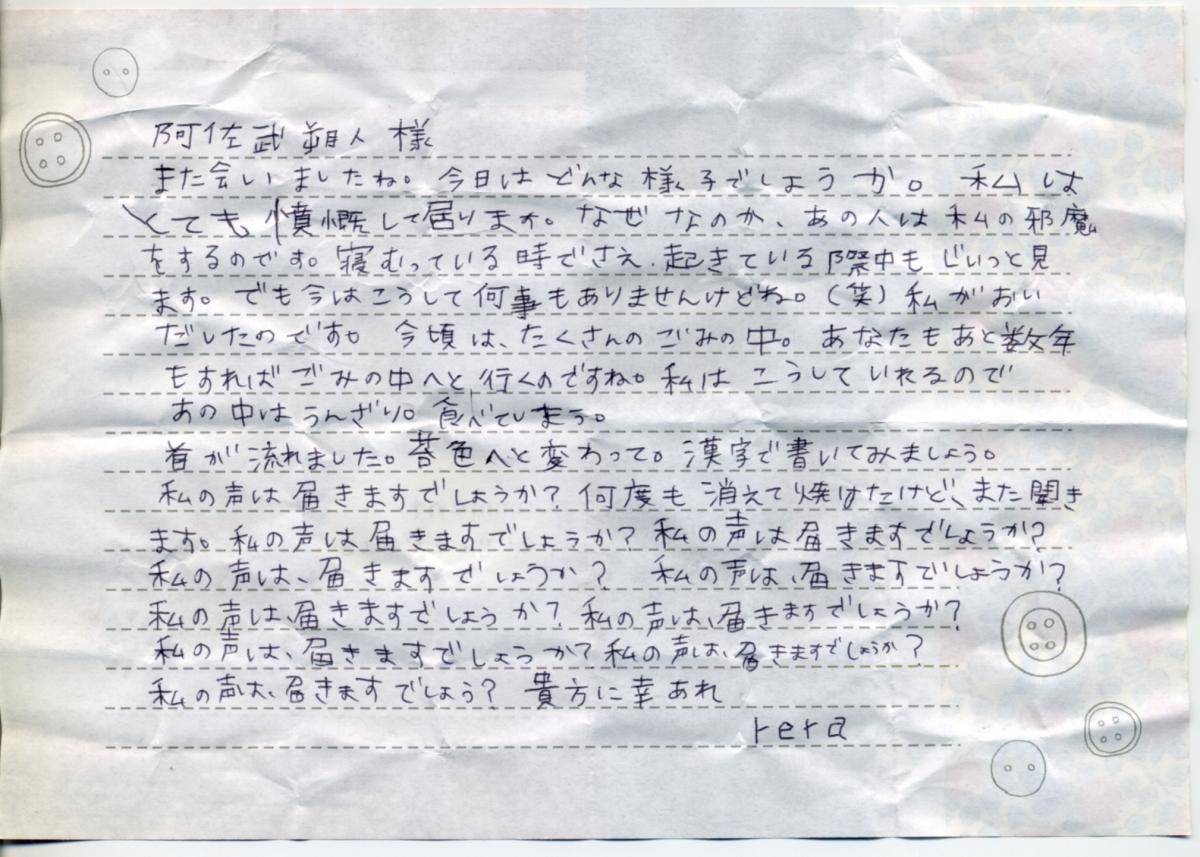 阿佐武朔人 様
また会いましたね。今日はどんな様子でしょうか。 私は
とても憤慨して居ります。なぜなのか、あの人は私の邪魔
をするのです。寝むっている時でさえ、起きている際中もじいっと見
ます。でも今はこうして何事もありませんけどね。(笑)私がおい
だしたのです。 今頃は、たくさんのごみの中。 あなたもあと数年
もすればごみの中へと行くのですね。私は こうしていれるので
あの中はうんざり。食べてしまう。
首が流れました。苔色へと変わって。漢字で書いてみましょう。
私の声は届きますでしょうか?何度も消えて焼けたけど、また聞き
ます。私の声は届きますでしょうか?私の声は届きますでしょうか?
私の声は、届きますでしょうか? 私の声は、届きますでしょうか?
私の声は、届きますでしょうか?私の声は、届きますでしょうか?
私の声は、届きますでしょうか?私の声は、届きますでしょうか?
私の声は、届きますでしょう? 貴方に幸あれ
rera